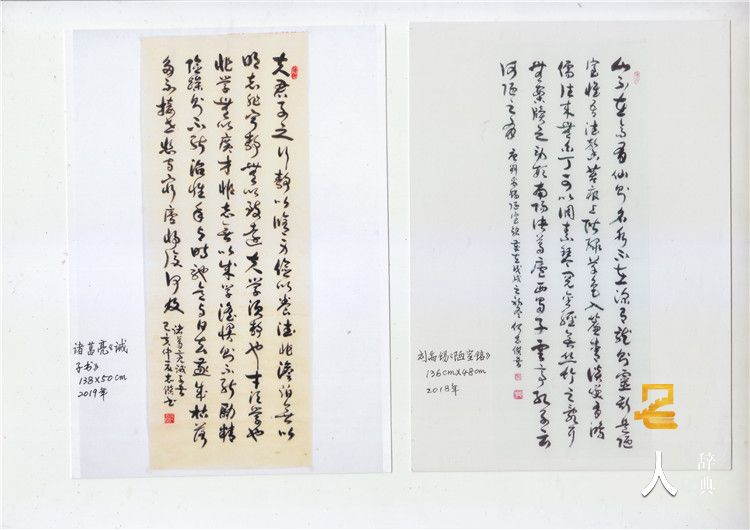 夫君子之行静以修身俭以养德非澹泊无以
明志非宁静无以致远夫学须静也才须学也
非学无以广才非志无以成学慆慢则不能励精
险躁则不能治性年与时驰意与日去遂成枯落
多不接世悲守穷庐将复何及
诸葛亮诫子书
己亥仲
诸葛亮《诫
子书》
138X50cm
2019年
山不在高有仙则名水不在深有龙则灵斯是陋
室惟吾德馨苔痕上阶绿草色入帘青谈笑有鸿
儒往来无白丁可以调素琴阅金经无丝竹之乱耳
无案牍之劳形南阳诸葛庐西蜀子云亭孔子云
何陋之有 唐刘禹锡陋室铭 岁在戊戌之初冬
刘禹锡《陋室铭》
136cmX48cm
2018年
人
辞典